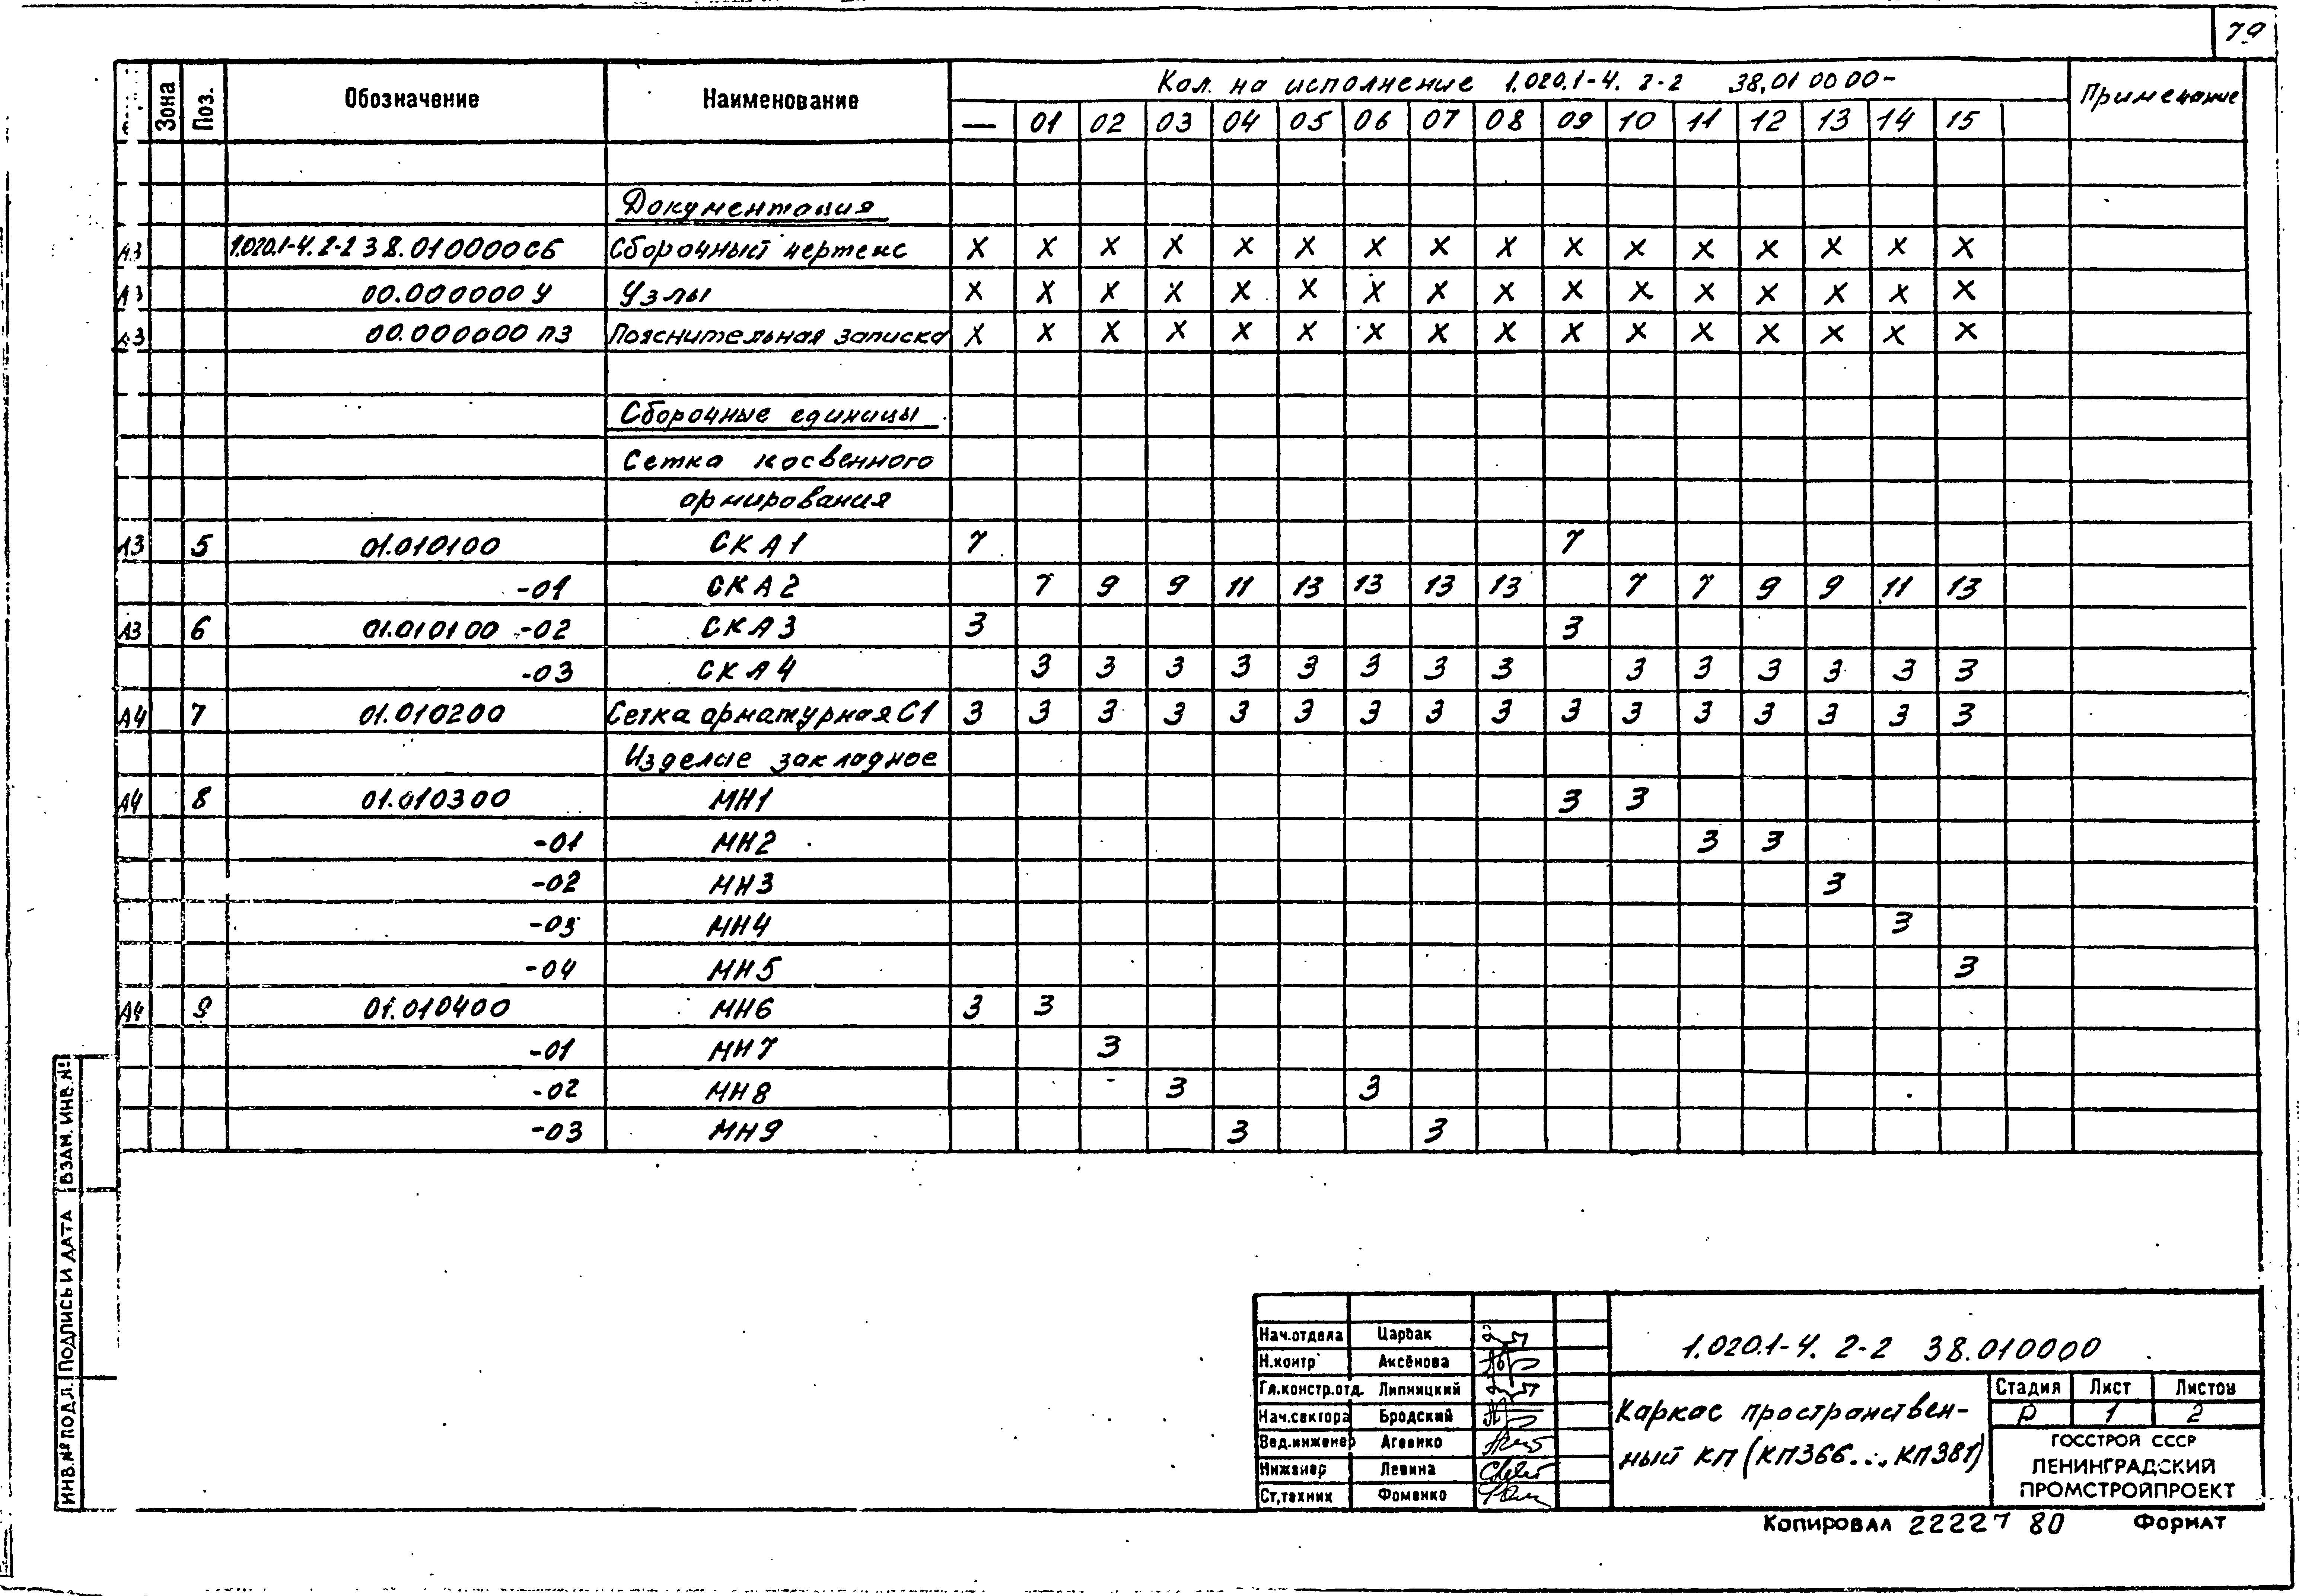 79
Зона Поз. Обозначение Наименование Кол. на исполнение 1.020.1-4. 2-2 38.01 00 00- Примечание
— 01 02 03 04 05 06 07 08 09 10 11 12 13 14 15
Документация
А3 1.020.1-4. 2-2 38.010000СБ Сборочный чертеж X X X X X X X X X X X X X X X X
А3 00.000000У Узлы X X X X X X X X X X X X X X X X
А3 00.000000 ПЗ Пояснительная записка X X X X X X X X X X X X X X X X
Сборочные единицы
Сетка косвенного
армирования
А3 5 01.010100 СКА1 7 7
-01 СКА2 7 9 9 11 13 13 13 13 7 7 9 9 11 13
А3 6 01.010100 -02 СКА3 3 3
-03 СКА4 3 3 3 3 3 3 3 3 3 3 3 3 3 3
А4 7 01.010200 Сетка арматурная С1 3 3 3 3 3 3 3 3 3 3 3 3 3 3 3 3
Изделие закладное
А4 8 01.010300 МН1 3 3
-01 МН2 3 3
-02 МН3 3
-03 МН4 3
-04 МН5 3
А4 9 01.010400 МН6 3 3
-01 МН7 3
-02 МН8 3 3
-03 МН9 3 3
ИНВ.№ ПОДЛ. ПОДПИСЬ И ДАТА ВЗАМ. ИНВ.№
Нач.отдела Царбак
Н.контр Аксёнова
Гл.констр.отд. Липницкий
Нач.сектора Бродский
Вед.инженер Агеенко
Инженер Левина
Ст,техник Фоменко
1.020.1-4. 2-2 38.010000
Каркас пространствен-
ный КП (КП366..., КП381)
Стадия Лист Листов
Р 1 2
ГОССТРОЙ СССР
ЛЕНИНГРАДСКИЙ
ПРОМСТРОЙПРОЕКТ
Копировал 22227 80 Формат